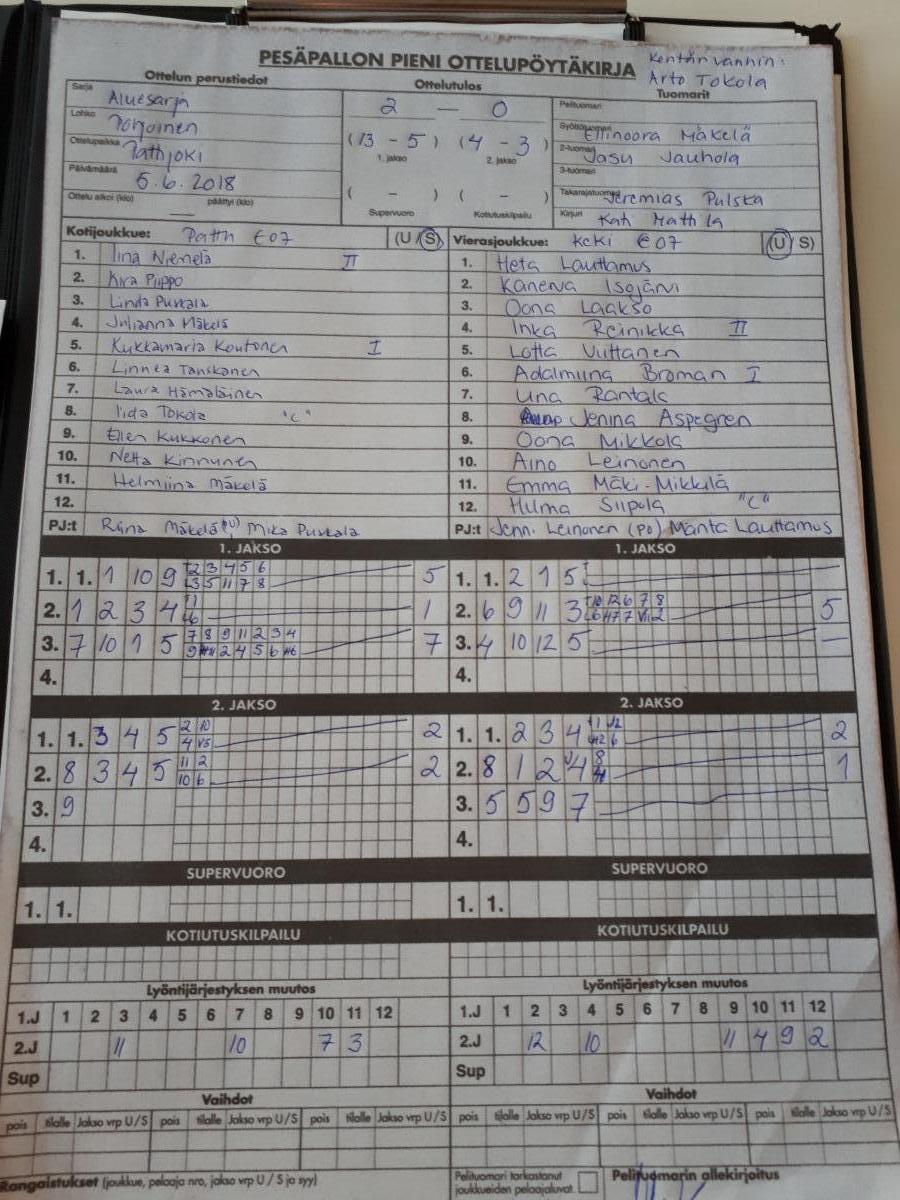 PESÄPALLON PIENI OTTELUPÖYTÄKIRJA
Kentän vanhin:
Arto Tokola
Ottelun perustiedot
Ottelutulos
Tuomarit
Sarja Aluesarja
Lohko Pohjoinen
Ottelupaikka Pattijoki
Päivämäärä 5.6.2018
Ottelu alkoi (klo) — päättyi (klo)
2 — 0
(13 - 5) (4 - 3)
1. jakso 2. jakso
( - ) ( - )
Supervuoro Kotiutuskilpailu
Pelituomari
Syöttötuomari Ellinoora Mäkelä
2-tuomari Jasu Jauhola
3-tuomari
Takarajatuomari Jeremias Pulska
Kirjuri Kati Mattila
Kotijoukkue: Patti E07 (U/S)
1. Iina Niemelä II
2. Kira Piippo
3. Linda Purkala
4. Julianna Mäkelä
5. Kukkamaria Keutonen I
6. Linnea Tanskanen
7. Laura Hämäläinen
8. Iida Tokola "C"
9. Ellen Kukkonen
10. Netta Kinnunen
11. Helmiina Mäkelä
12.
PJ:t Riina Mäkelä Mika Purkala
Vierasjoukkue: KeKi E07 (U/S)
1. Heta Lauttamus
2. Kanerva Isojärvi
3. Oona Laakso
4. Inka Reinikka II
5. Lotta Viittanen
6. Adalmiina Broman I
7. Una Rantala
8. Jenina Aspegren
9. Oona Mikkola
10. Aino Leinonen
11. Emma Mäki-Mikkilä
12. Hilma Siipola "C"
PJ:t Jenni Leinonen (PO) Manta Lauttamus
1. JAKSO
1. 1. 1 10 9 2 3 4 5 6 5
3 5 11 7 8
2. 1 2 3 4 1 1
6
3. 7 10 1 5 7 8 9 11 2 3 4 7
9 2 4 5 6
4.
1. JAKSO
1. 1. 2 1 5 —
2. 6 9 11 3 10 12 6 7 8 5
3. 4 10 12 5 —
4.
2. JAKSO
1. 1. 3 4 5 2 10 2
4 V5
2. 8 3 4 5 11 2 2
10 6
3. 9
4.
2. JAKSO
1. 1. 2 3 4 2
2. 8 1 2 4 8 1
3. 5 5 9 7
4.
SUPERVUORO
1. 1.
SUPERVUORO
1. 1.
KOTIUTUSKILPAILU
KOTIUTUSKILPAILU
Lyöntijärjestyksen muutos
1.J 1 2 3 4 5 6 7 8 9 10 11 12
2.J 11 10 7 3
Sup
Lyöntijärjestyksen muutos
1.J 1 2 3 4 5 6 7 8 9 10 11 12
2.J 12 10 11 4 9 2
Sup
Vaihdot
pois tilalle Jakso vrp U/S pois tilalle Jakso vrp U/S pois tilalle Jakso vrp U/S
Vaihdot
pois tilalle Jakso vrp U/S pois tilalle Jakso vrp U/S pois tilalle Jakso vrp U/S
Rangaistukset (joukkue, pelaaja nro, jakso vrp U / S ja syy)
Pelituomari tarkastanut
joukkueiden pelaajaluvat.
Pelituomarin allekirjoitus